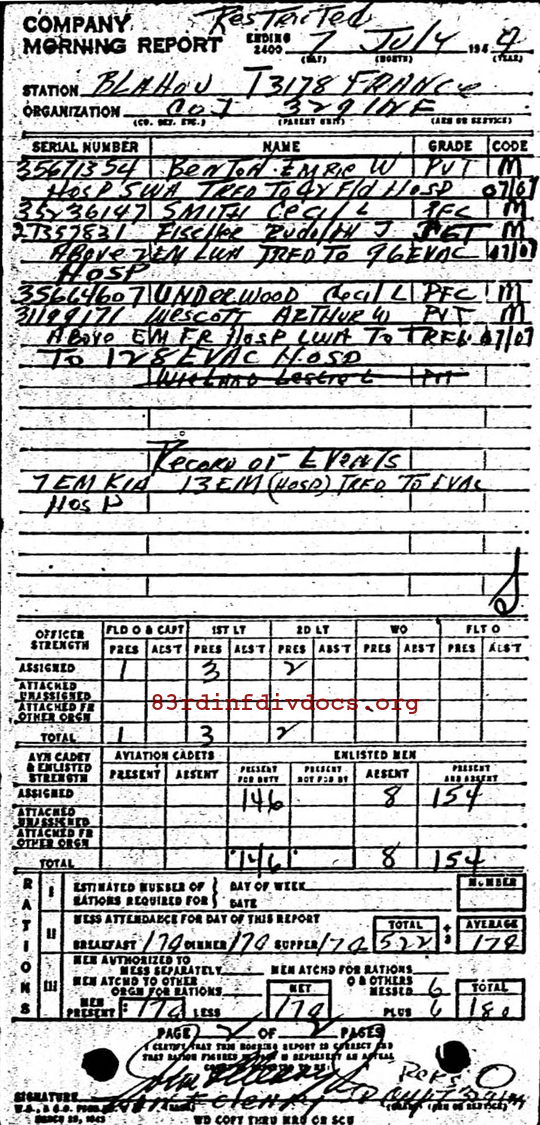 Restricted
COMPANY
MORNING REPORT ENDING 2400 7 July 194
(DAY) (MONTH) (YEAR)
STATION BLAHOU T3178 FRANCE
ORGANIZATION Co I 329 INF
(CO. DET. ETC.) (PARENT UNIT) (ARM OR SERVICE)
SERIAL NUMBER NAME GRADE CODE
35671354 Benton Emrie W PVT M
HOSP SWA TRFD TO 4x Fld HOSP 07/07
35236147 SMITH Cecil L PFC M
21357831 Fischer Rudolph J M
Above 2 EM LWA TRFD TO 96 EVAC 07/07
HOSP
35664607 UNDERWOOD Cecil L PFC M
31199171 Wescott ARTHUR W PVT M
Above EM FR HOSP LWA To TRFD 07/07
TO 128 EVAC HOSP
Record of Events
7 EM KIA 13 EM (HOSP) TRFD TO EVAC
HOSP
OFFICER STRENGTH FLD O & CAPT 1ST LT 2D LT WO FLT O
PRES ABS'T PRES ABS'T PRES ABS'T PRES ABS'T PRES ABS'T
ASSIGNED 1 3 2
ATTACHED UNASSIGNED
ATTACHED FR OTHER ORGN
83rdinfdivdocs.org
TOTAL 1 3 2
AVN CADET & ENLISTED STRENGTH AVIATION CADETS ENLISTED MEN
PRESENT ABSENT PRESENT FOR DUTY PRESENT NOT FOR DY ABSENT PRESENT AND ABSENT
ASSIGNED 146 8 154
ATTACHED UNASSIGNED
ATTACHED FR OTHER ORGN
TOTAL 146 8 154
RATIONS
I ESTIMATED NUMBER OF RATIONS REQUIRED FOR { DAY OF WEEK DATE NUMBER
II MESS ATTENDANCE FOR DAY OF THIS REPORT TOTAL ÷ 3 AVERAGE
BREAKFAST 174 DINNER 174 SUPPER 174 522 174
III MEN AUTHORIZED TO MESS SEPARATELY MEN ATCHD FOR RATIONS
MEN ATCHD TO OTHER ORGN FOR RATIONS NET O & OTHERS MESSED 6 TOTAL
MEN PRESENT 174 LESS 174 PLUS 6 180
PAGE 2 OF 2 PAGES
I CERTIFY THAT THIS MORNING REPORT IS CORRECT AND
THAT RATION FIGURES IN III REPRESENT AN ACTUAL
SIGNATURE
MARCH 25, 1943 WD COPY THRU MRU OR SCU